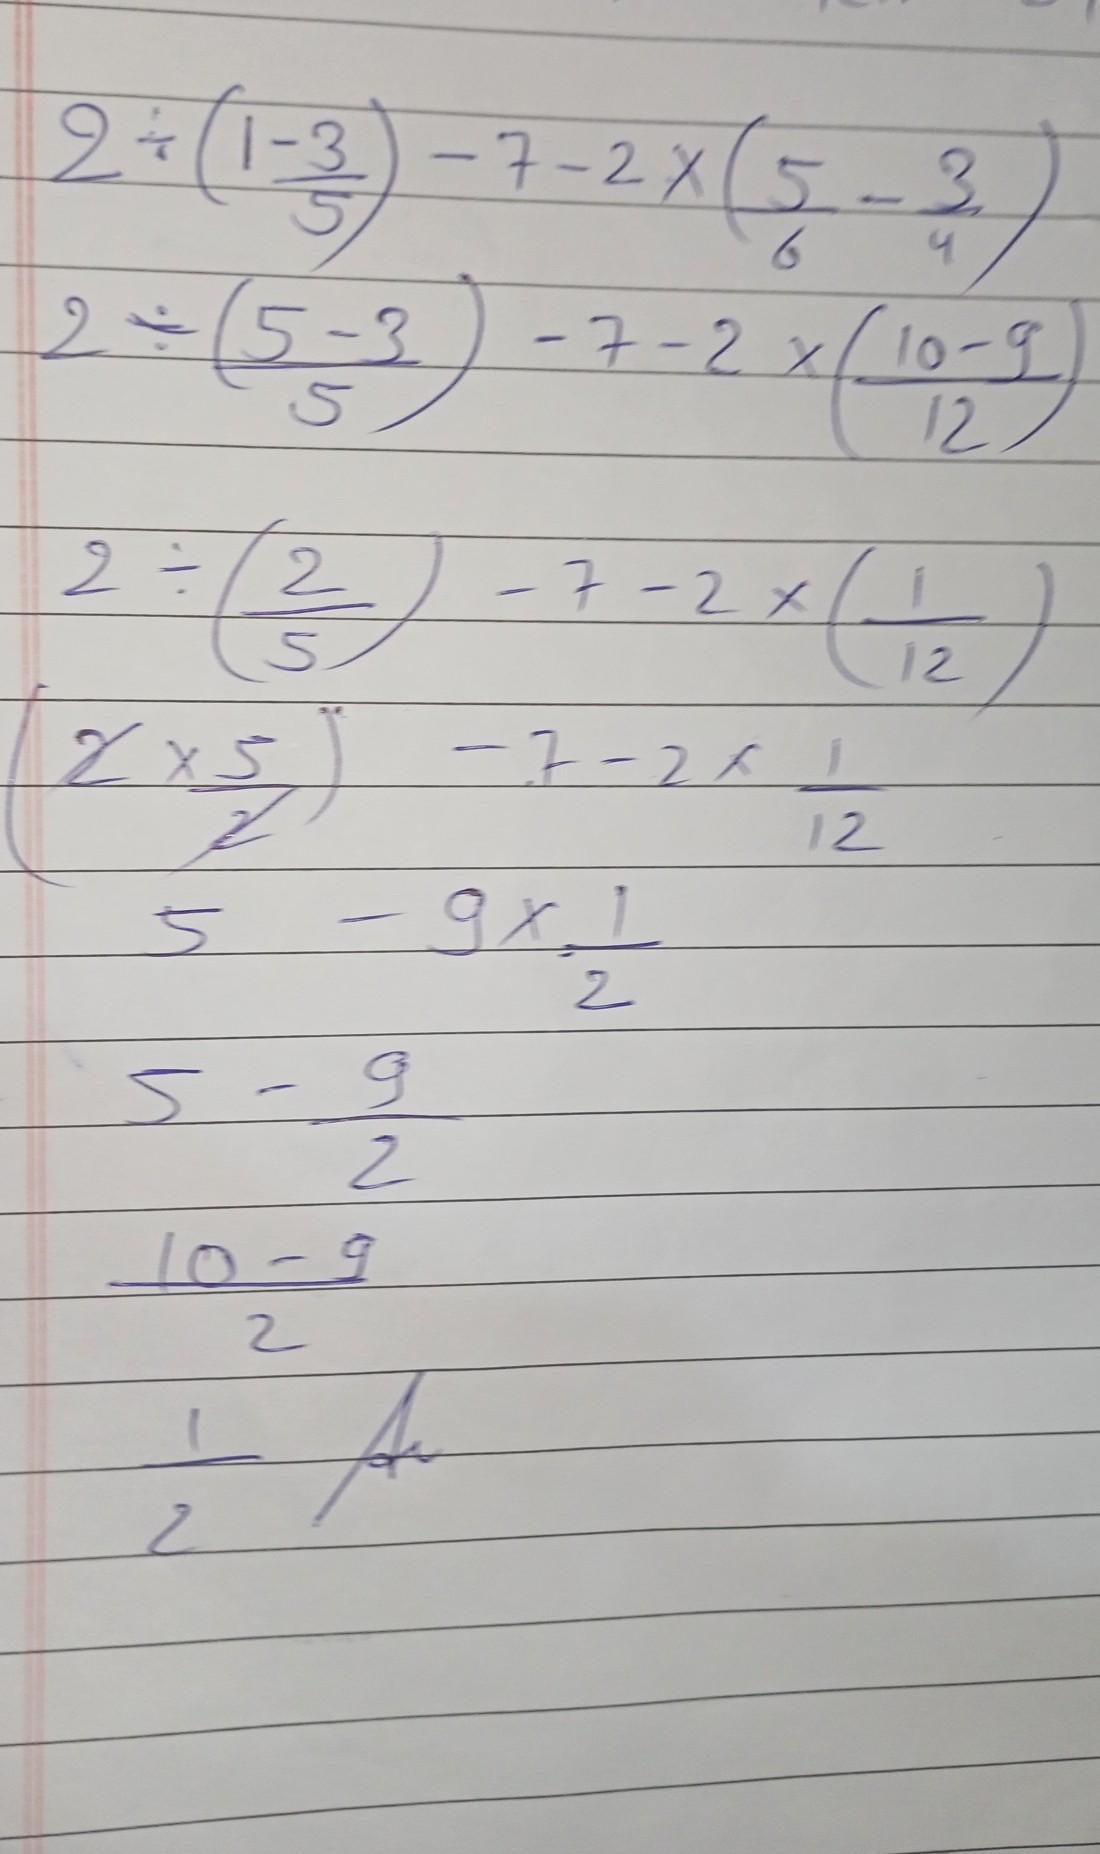 2 ÷ (1 - 3/5) - 7 - 2 × (5/6 - 3/4)
2 ÷ ((5 - 3)/5) - 7 - 2 × ((10 - 9)/12)
2 ÷ (2/5) - 7 - 2 × (1/12)
(2 × 5/2) - 7 - 2 × 1/12
5 - 9 × 1/2
5 - 9/2
(10 - 9)/2
1/2